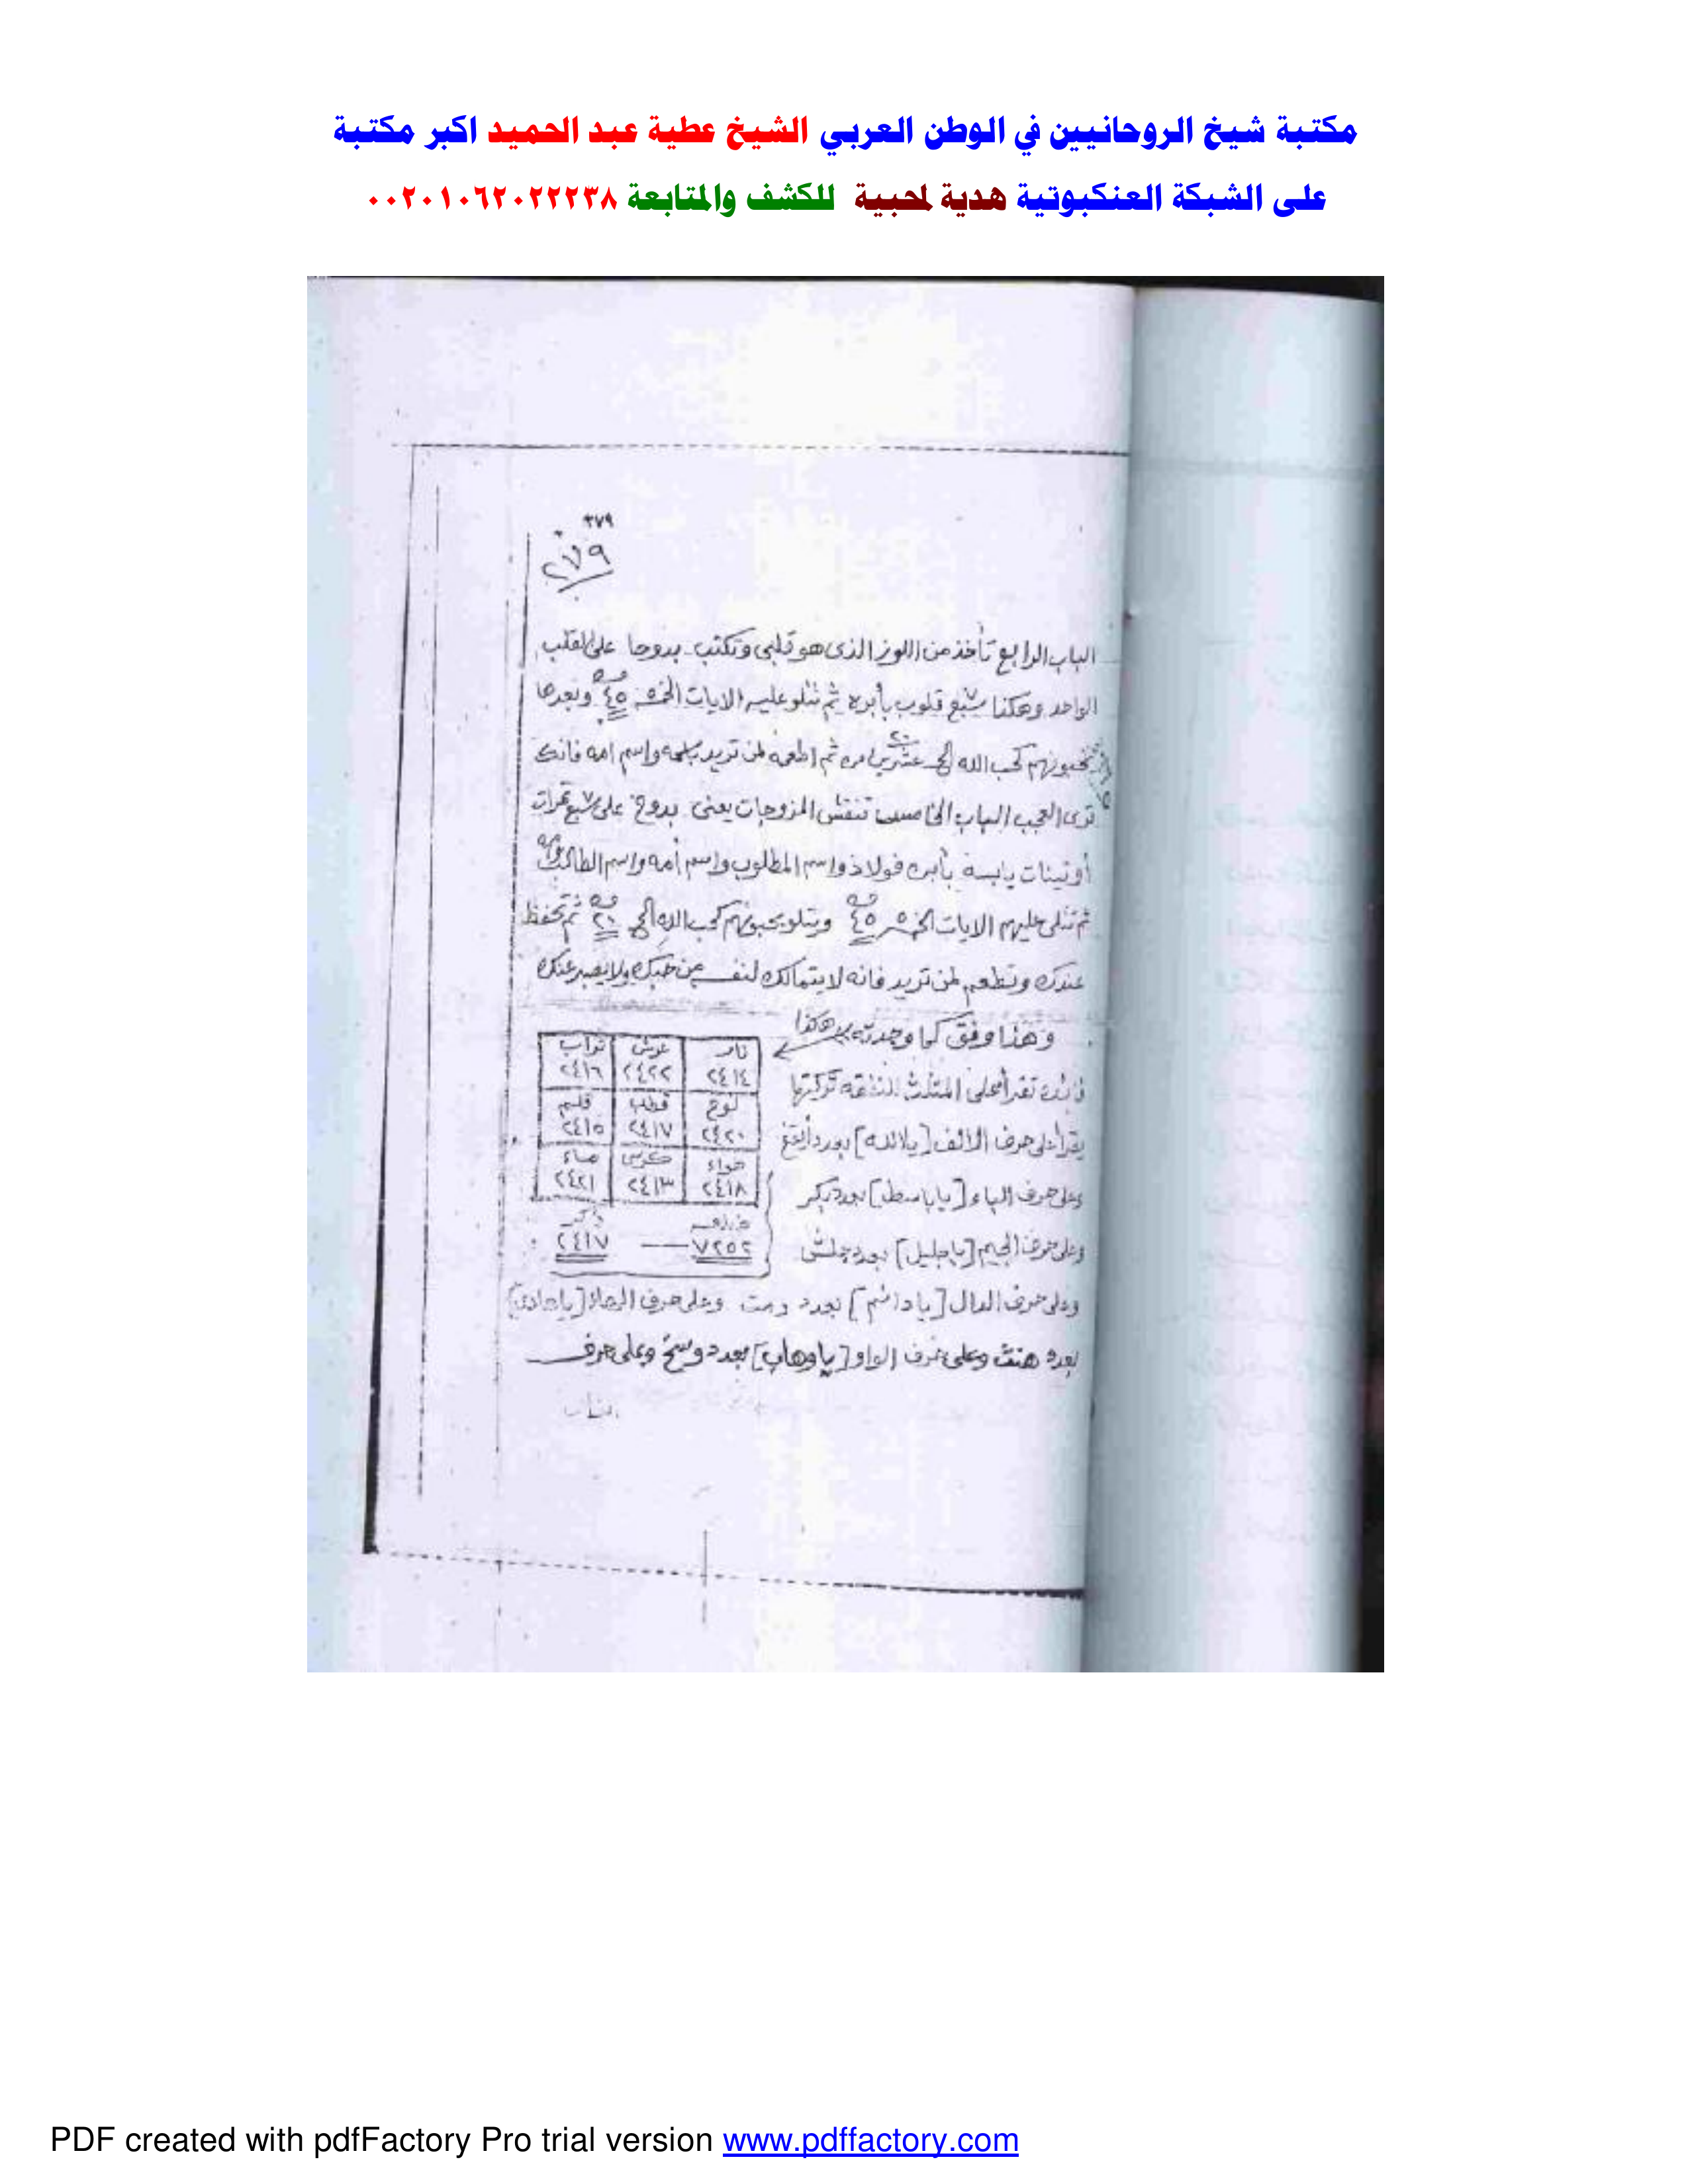 مكتبة شيخ الروحانيين في الوطن العربي الشيخ عطية عبد الحميد اكبر مكتبة
على الشبكة العنكبوتية هدية لمحبية للكشف والمتابعة ٠٠٢٠١٠٦٢٠٢٢٢٣٨
٣٧٩
٢٧٩
الباب الرابع تأخذ من اللوز الذى هو قلبى وتكتب بدوحا على القلب
الواحد وهكذا سبع قلوب بأبره ثم تتلو عليه الايات الخمسه ٤٥ وبعدها
يحبونهم كحب الله الخ عشرين مره ثم اطعمه لمن تريد باسمه واسم امه فانك
ترى العجب الباب الخامس تنقش المزوجات يعنى بدوح على سبع تمرات
أو تينات يابسة بأبره فولاذ واسم المطلوب واسم أمه واسم الطالب
ثم تتلى عليهم الايات الخمسه ٤٥ ويتلو يحبونهم كحب الله الخ ٢٠ ثم تحفظ
عندك وتطعم لمن تريد فانه لا يتمالك لنفسه من حبك ولا يصبر عنك
وهذا وفق كما وجدته هكذا
نار عرش تراب
٢٤١٤ ٢٤٢٢ ٢٤١٦
لوح قطب قلم
٢٤٢٠ ٢٤١٧ ٢٤١٥
هواء كرسى ماء
٢٤١٨ ٢٤١٣ ٢٤٢١
٧٢٥٢ ٢٤١٧
تقرأ على المثلث
يقرأ على حرف الالف [ياالله] بعدد أيقغ
وعلى حرف الباء [ياباسط] بعدد بكر
وعلى حرف الجيم [ياجليل] بعدد جلش
وعلى حرف الدال [يادائم] بعدد دمت وعلى حرف الهاء [ياهادى]
بعدد هنث وعلى حرف الواو [ياوهاب] بعدد وسخ وعلى حرف
PDF created with pdfFactory Pro trial version www.pdffactory.com